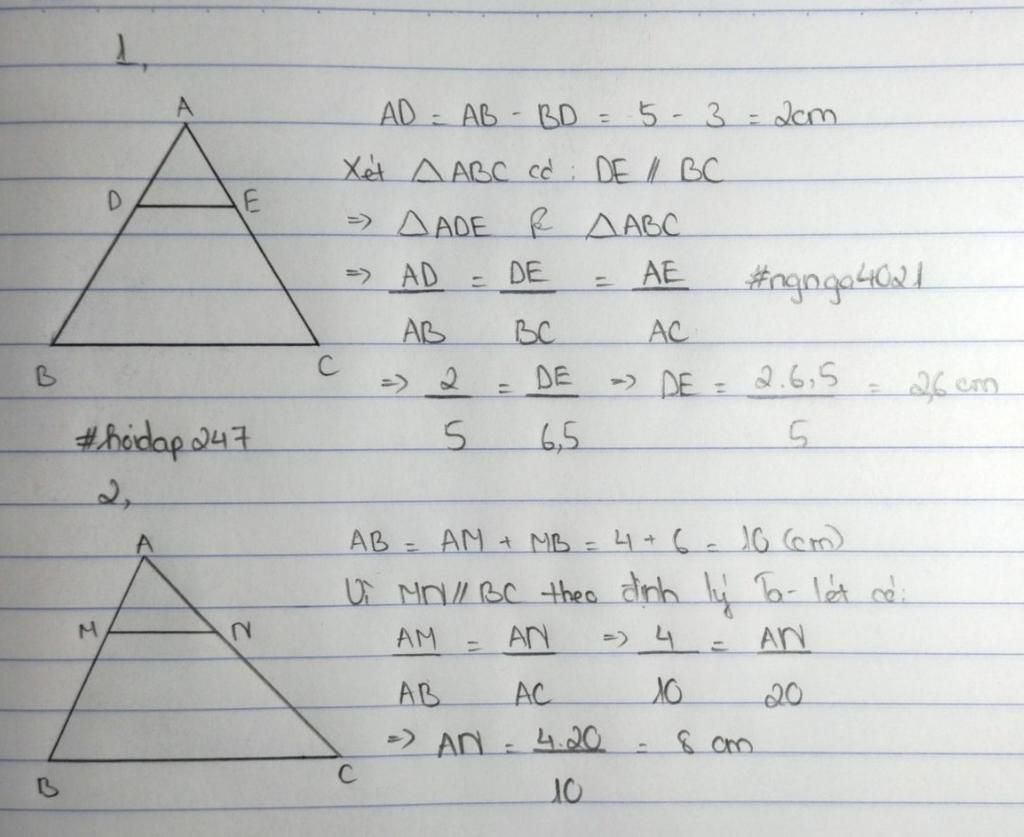 1,
A
D E
B C
AD = AB - BD = 5 - 3 = 2cm
Xét △ABC có : DE // BC
=> △ADE ∽ △ABC
=> AD/AB = DE/BC = AE/AC #ngngo4021
=> 2/5 = DE/6,5 => DE = 2.6,5/5 = 2,6 cm
#hoidap247
2,
A
M N
B C
AB = AM + MB = 4 + 6 = 10 (cm)
Vì MN // BC theo định lý Ta-lét có:
AM/AB = AN/AC => 4/10 = AN/20
=> AN = 4.20/10 = 8 cm